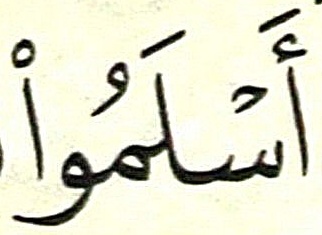 أَسْلَمُوا۟